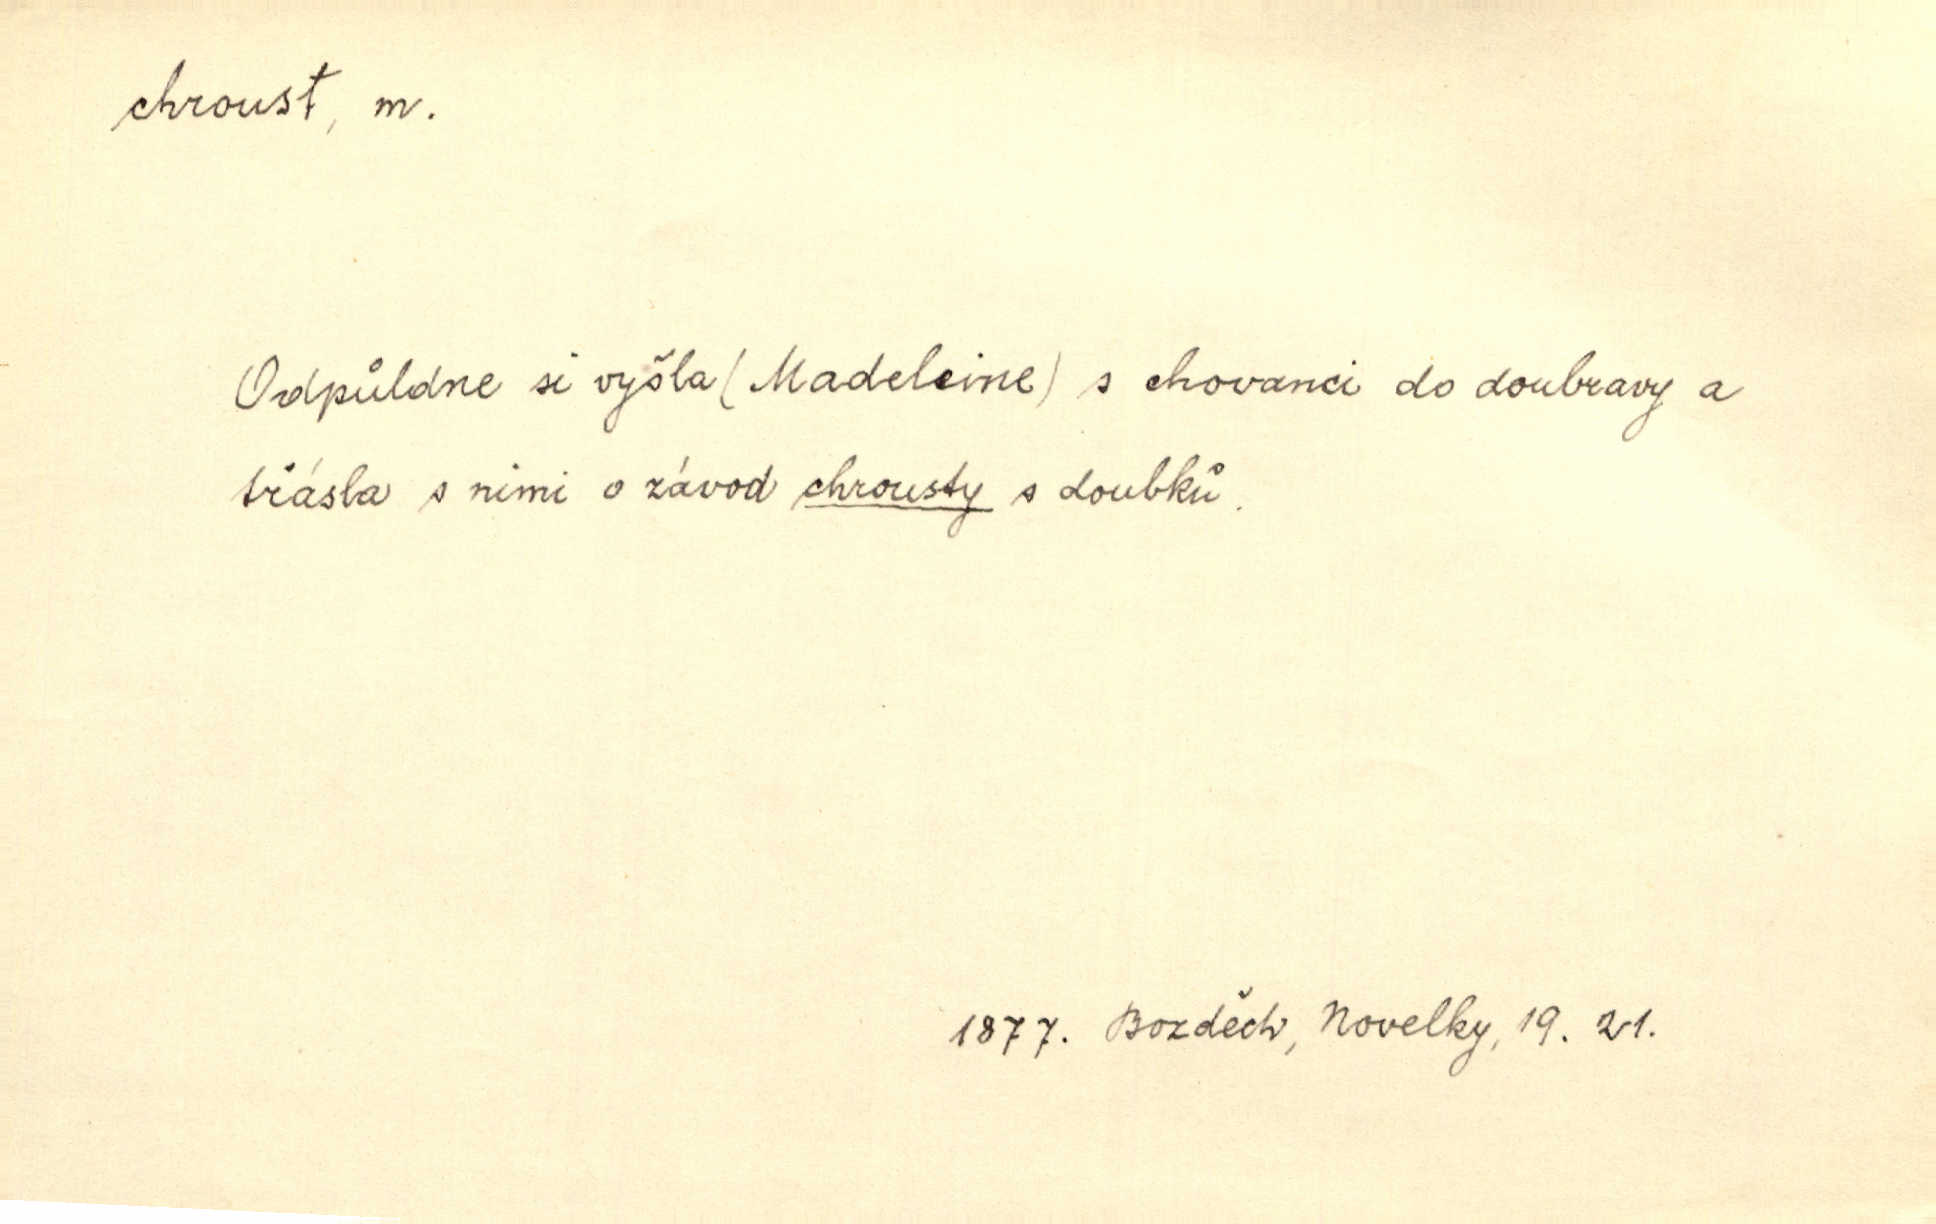 chroust, m.
Odpůldne si vyšla (Madeleine) s chovanci do doubravy a
třásla s nimi o závod chrousty s doubků.
1877. Bozděch, Novelky, 19. 21.